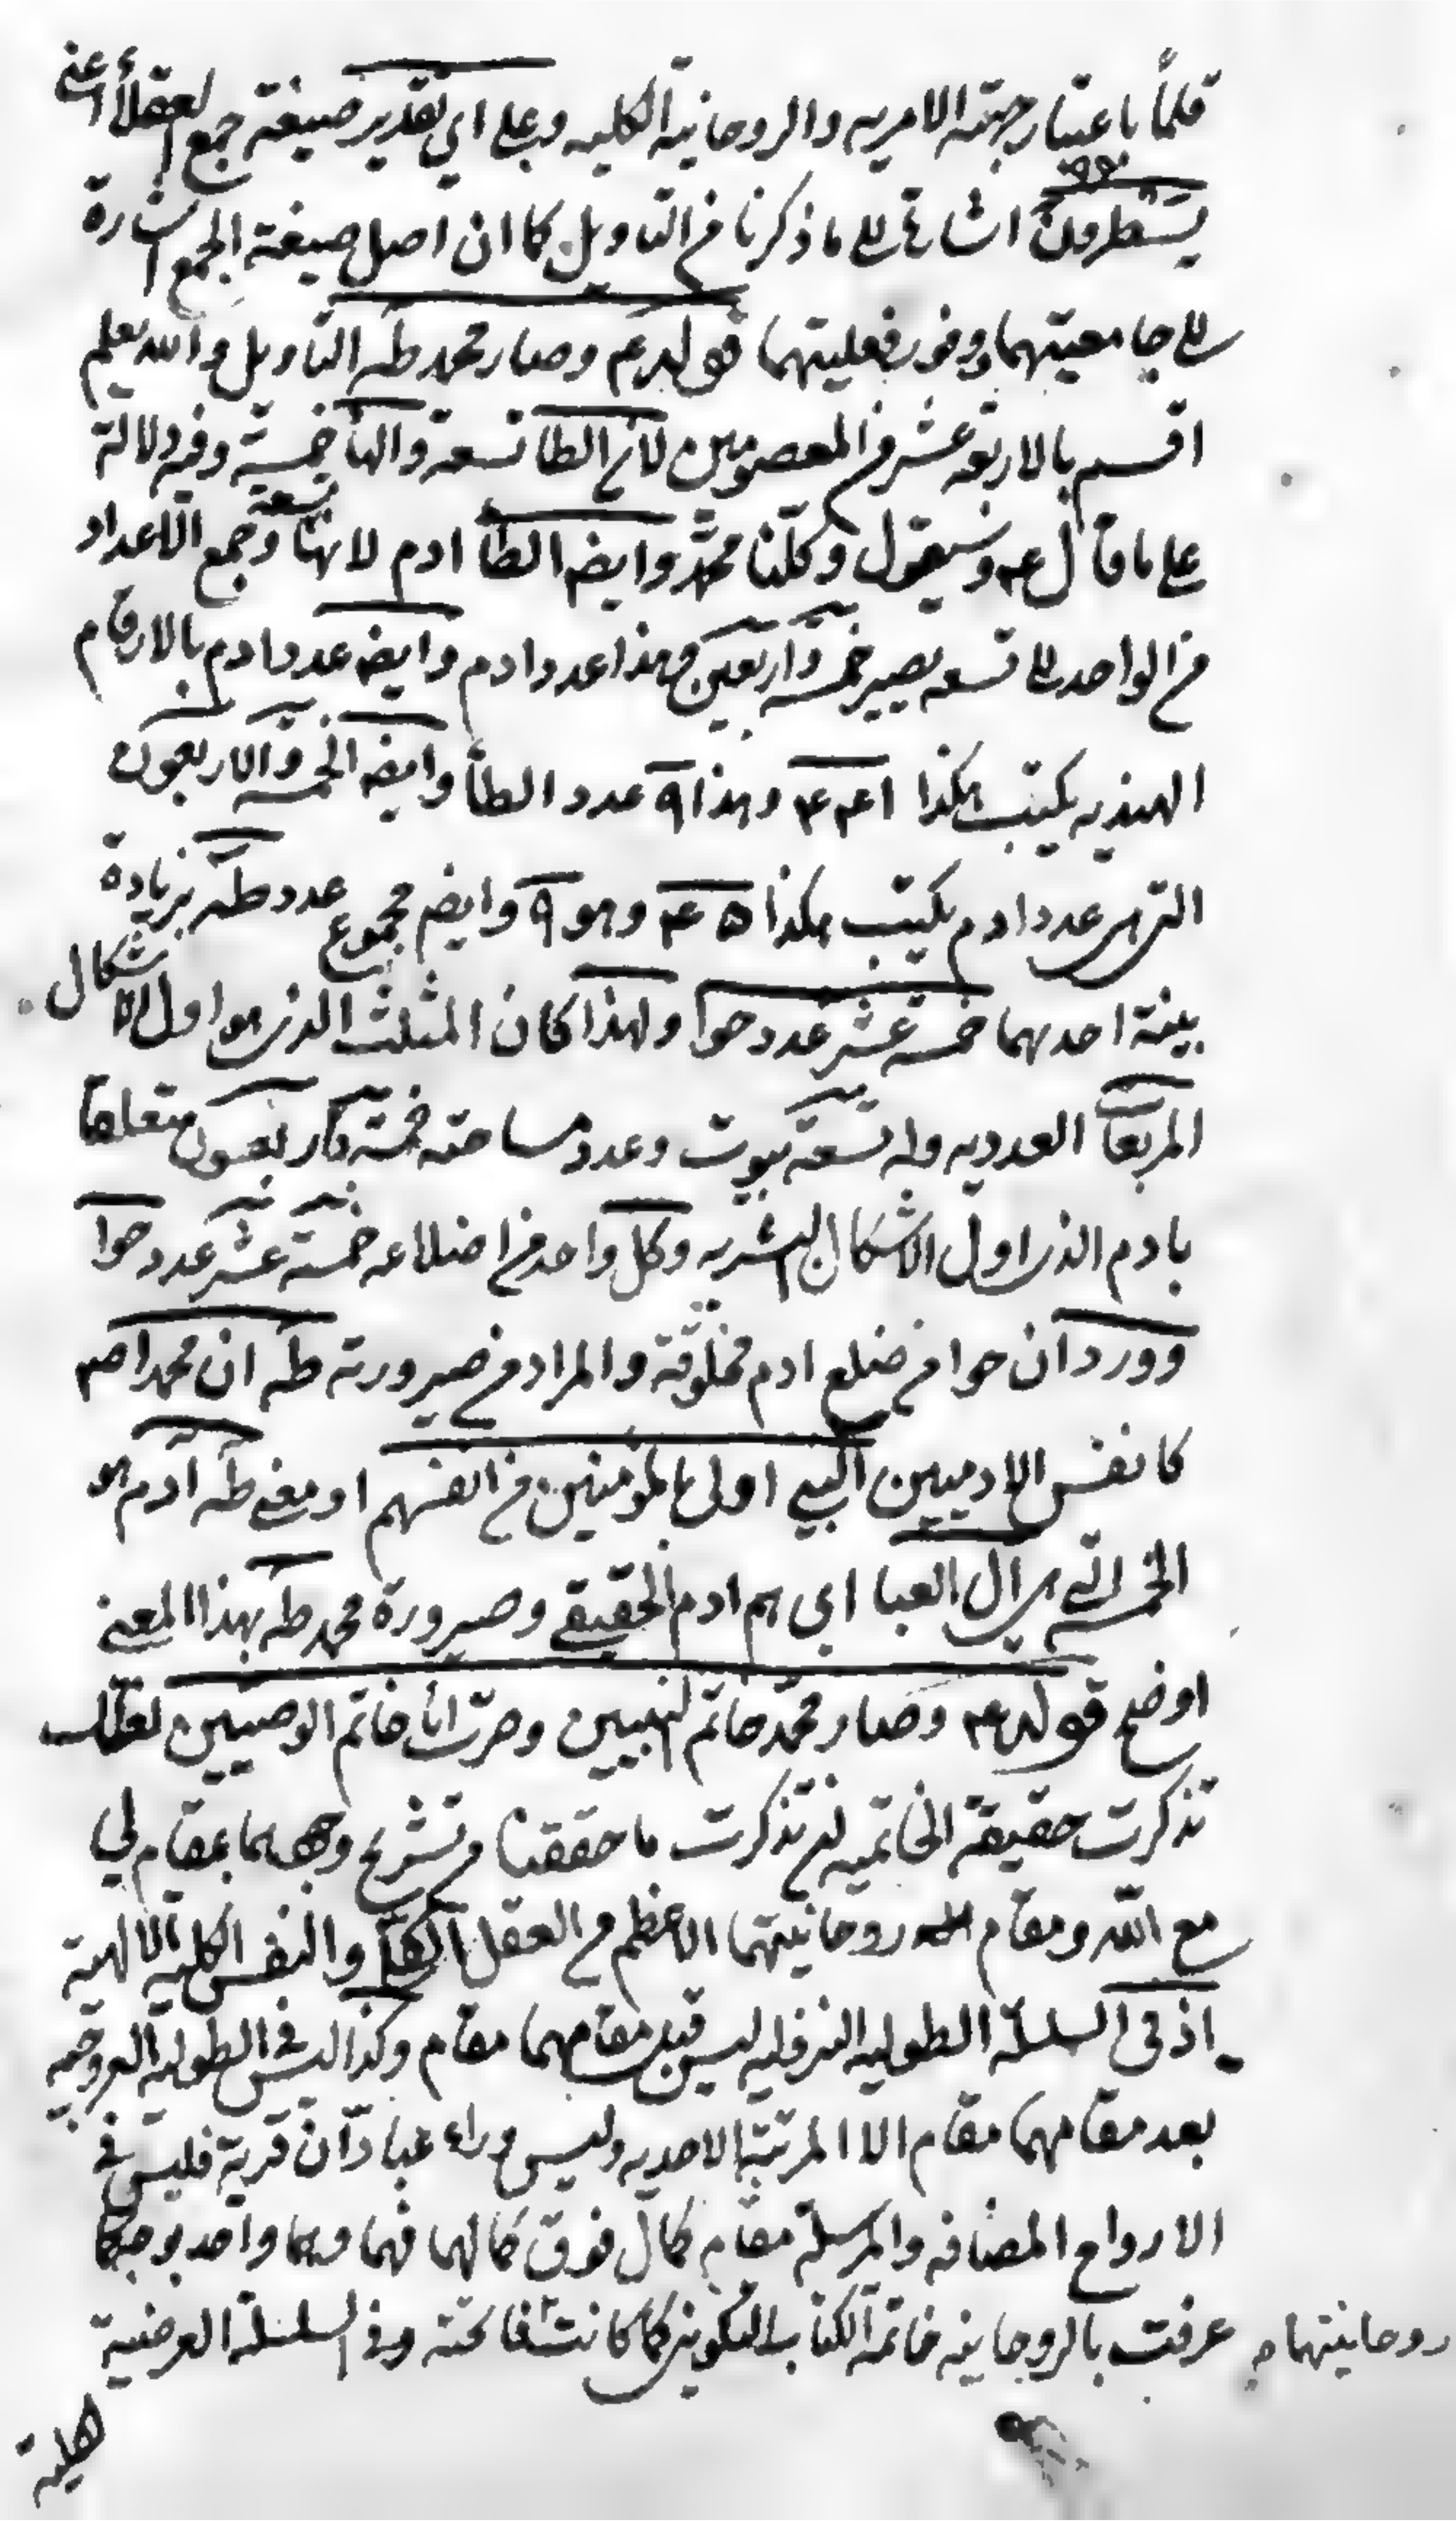 قلماً باعتبار جهته الامريه والروحانية الكليه وعلى اي تقدير صيغة جمع العقلأ اعني
يَسْطُرُونَ اشارة الى ما ذكرنا من التاويل كما ان اصل صيغة الجمع اشارة
الى جامعيتهما ووفور فعليتهما قوله ع وصار محمد طه التاويل والله يعلم
اقسم بالاربعة عشر من المعصومين لان الطا تسعة والهأ خمسة وفيه دلالة
على ما قال ع وسيقول وكلّنا محمّد وايضا الطأ ادم لانها تسعة وجمع الاعداد
من الواحد الى تسعه يصير خمسة واربعين وهذا عدد ادم وايضا عدد ادم بالارقام
الهنديه يكتب هكذا ۱۴۴ وهذا ۹ عدد الطأ وايضا الخمسة والاربعون
التي هي عدد ادم يكتب هكذا ۴۵ وهو ۹ وايضا مجموع عدد طه بزيادة
بينة احدهما خمسة عشر عدد حوا ولهذا كان المثلث الذي هو اول الاشكال
المربعة العدديه وله تسعة بيوت وعدد مساحته خمسة واربعون متعلقا
بادم الذي اول الاشكال البشريه وكل واحد من اضلاعه خمسة عشر عدد حوا
وورد ان حوا من ضلع ادم مخلوقة والمراد من صيرورته طه ان محمدا ص
كانفس الادميين النبي اولى بالمؤمنين من انفسهم او معنى طه ادم هو
الخمسة التي هي ال العبا اي هم ادم الحقيقي وصيرورة محمد طه بهذا المعنى
اوضح قوله ع وصار محمّد خاتم النبيين وصرت انا خاتم الوصيين لعلك
تذكرت حقيقة الخاتميه ان تذكرت ما حققنا من تشريح وجههما بمقام لي
مع الله ومقام روحانيتهما الاعظم من العقل الكلي والنفس الكلية الالهية
اذ في السلسلة الطوليه النزوليه ليس قبل مقامهما مقام وكذا ليس في الطولية العروجيه
بعد مقامهما مقام الا المرتبة الاحديه وليس وراء عبادان قرية فليس في
الارواح المضافه والمرسلة مقام كمال فوق كمالهما فهما وهما واحد بوجه كما
روحانيتهما عرفت بالروحانيه خاتمة الكتاب التكويني كما كانت فاتحته وفي السلسلة العرضية